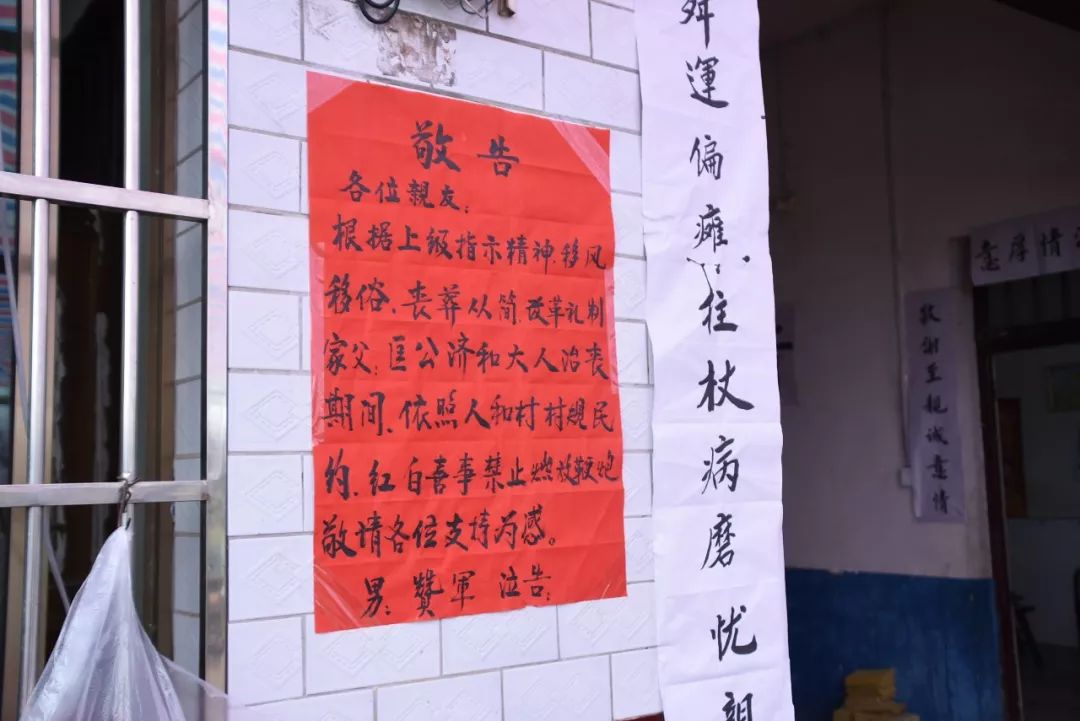 敬告
各位親友：
根据上级指示精神.移风
移俗、丧葬从简.改革礼制
家父：匡公济和大人治丧
期间、依照人和村村规民
约、红白喜事禁止燃放鞭炮
敬请各位支持为感。
男：贊軍 泣告：
運偏瘫拄杖病磨忧親
意厚情
敬谢至親诚意情